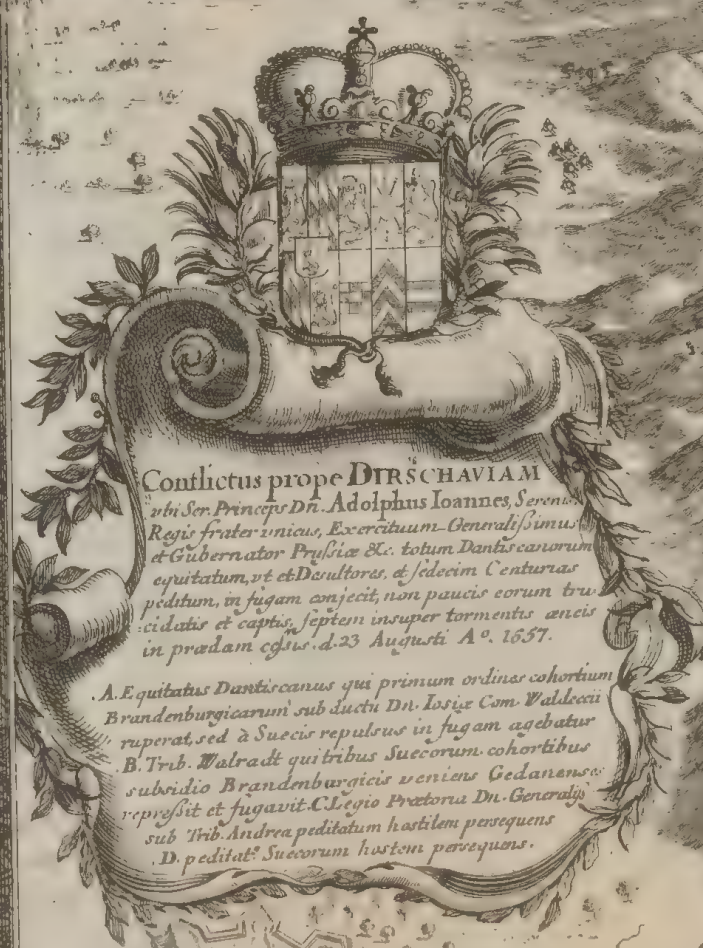 Conflictus prope DIRSCHAVIAM
vbi Ser. Princeps Dn. Adolphus Ioannes, Sereniss.
Regis frater vnicus, Exercituum Generalißimus
et Gubernator Prußiæ &c. totum Dantiscanorum
equitatum, vt et Desultores, et sedecim Centurias
peditum, in fugam conjecit, non paucis eorum tru-
cidatis et captis, septem insuper tormentis æneis
in prædam ceßis. d. 23 Augusti Aº. 1657.
A. Equitatus Dantiscanus qui primum ordines cohortium
Brandenburgicarum sub ductu Dn. Iosiæ Com. Waldeccii
ruperat, sed à Suecis repulsus in fugam agebatur
B. Trib. Walradt qui tribus Suecorum cohortibus
subsidio Brandenburgicis veniens Gedanenses
repreßit et fugavit. C. Legio Prætoria Dn. Generaliß
sub Trib. Andrea peditatum hostilem persequens
D. peditatº Suecorum hostem persequens.